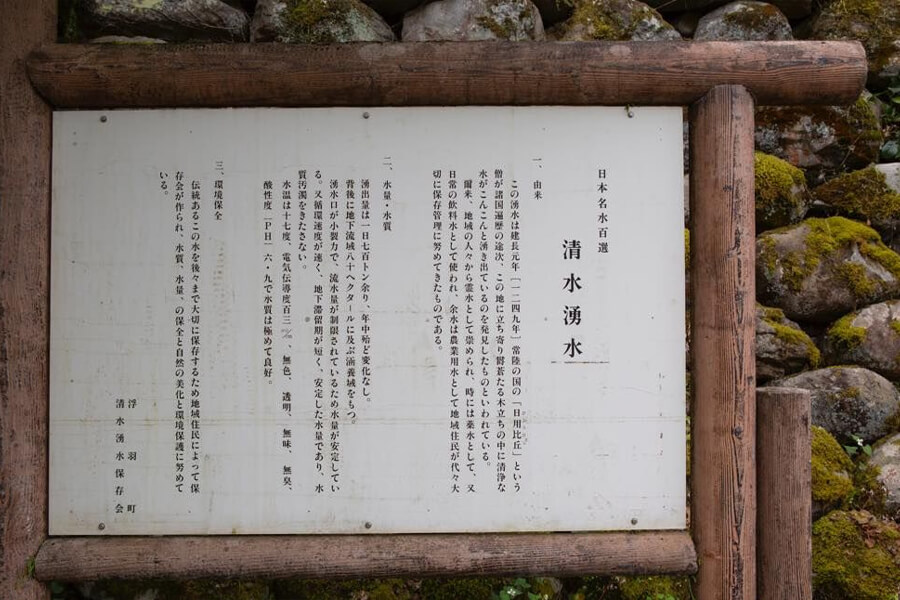 日本名水百選
清水湧水
一、由来
この湧水は建長元年〔一二四九年〕常陸の国の「日用比丘」という
僧が諸国遍歴の途次、この地に立ち寄り欝蒼たる木立ちの中に清浄な
水がこんこんと湧き出ているのを発見したものといわれている。
爾来、地域の人々から霊水として崇められ、時には薬水として、又
日常の飲料水として使われ、余水は農業用水として地域住民が代々大
切に保存管理に努めてきたものである。
二、水量・水質
湧出量は一日七百トン余り、年中殆ど変化なし。
背後に地下流域八十ヘクタールに及ぶ涵養域をもつ。
湧水口が小製力で、流水量が制限されているため水量が安定してい
る。又循環速度が速く、地下滞留期が短く、安定した水量であり、水
質汚濁をきたさない。
水温は十七度、電気伝導度百三、無色、透明、無味、無臭、
酸性度〔PH〕六・九で水質は極めて良好。
三、環境保全
伝統あるこの水を後々まで大切に保存するため地域住民によって保
存会が作られ、水質、水量、の保全と自然の美化と環境保護に努めて
いる。
浮羽町
清水湧水保存会